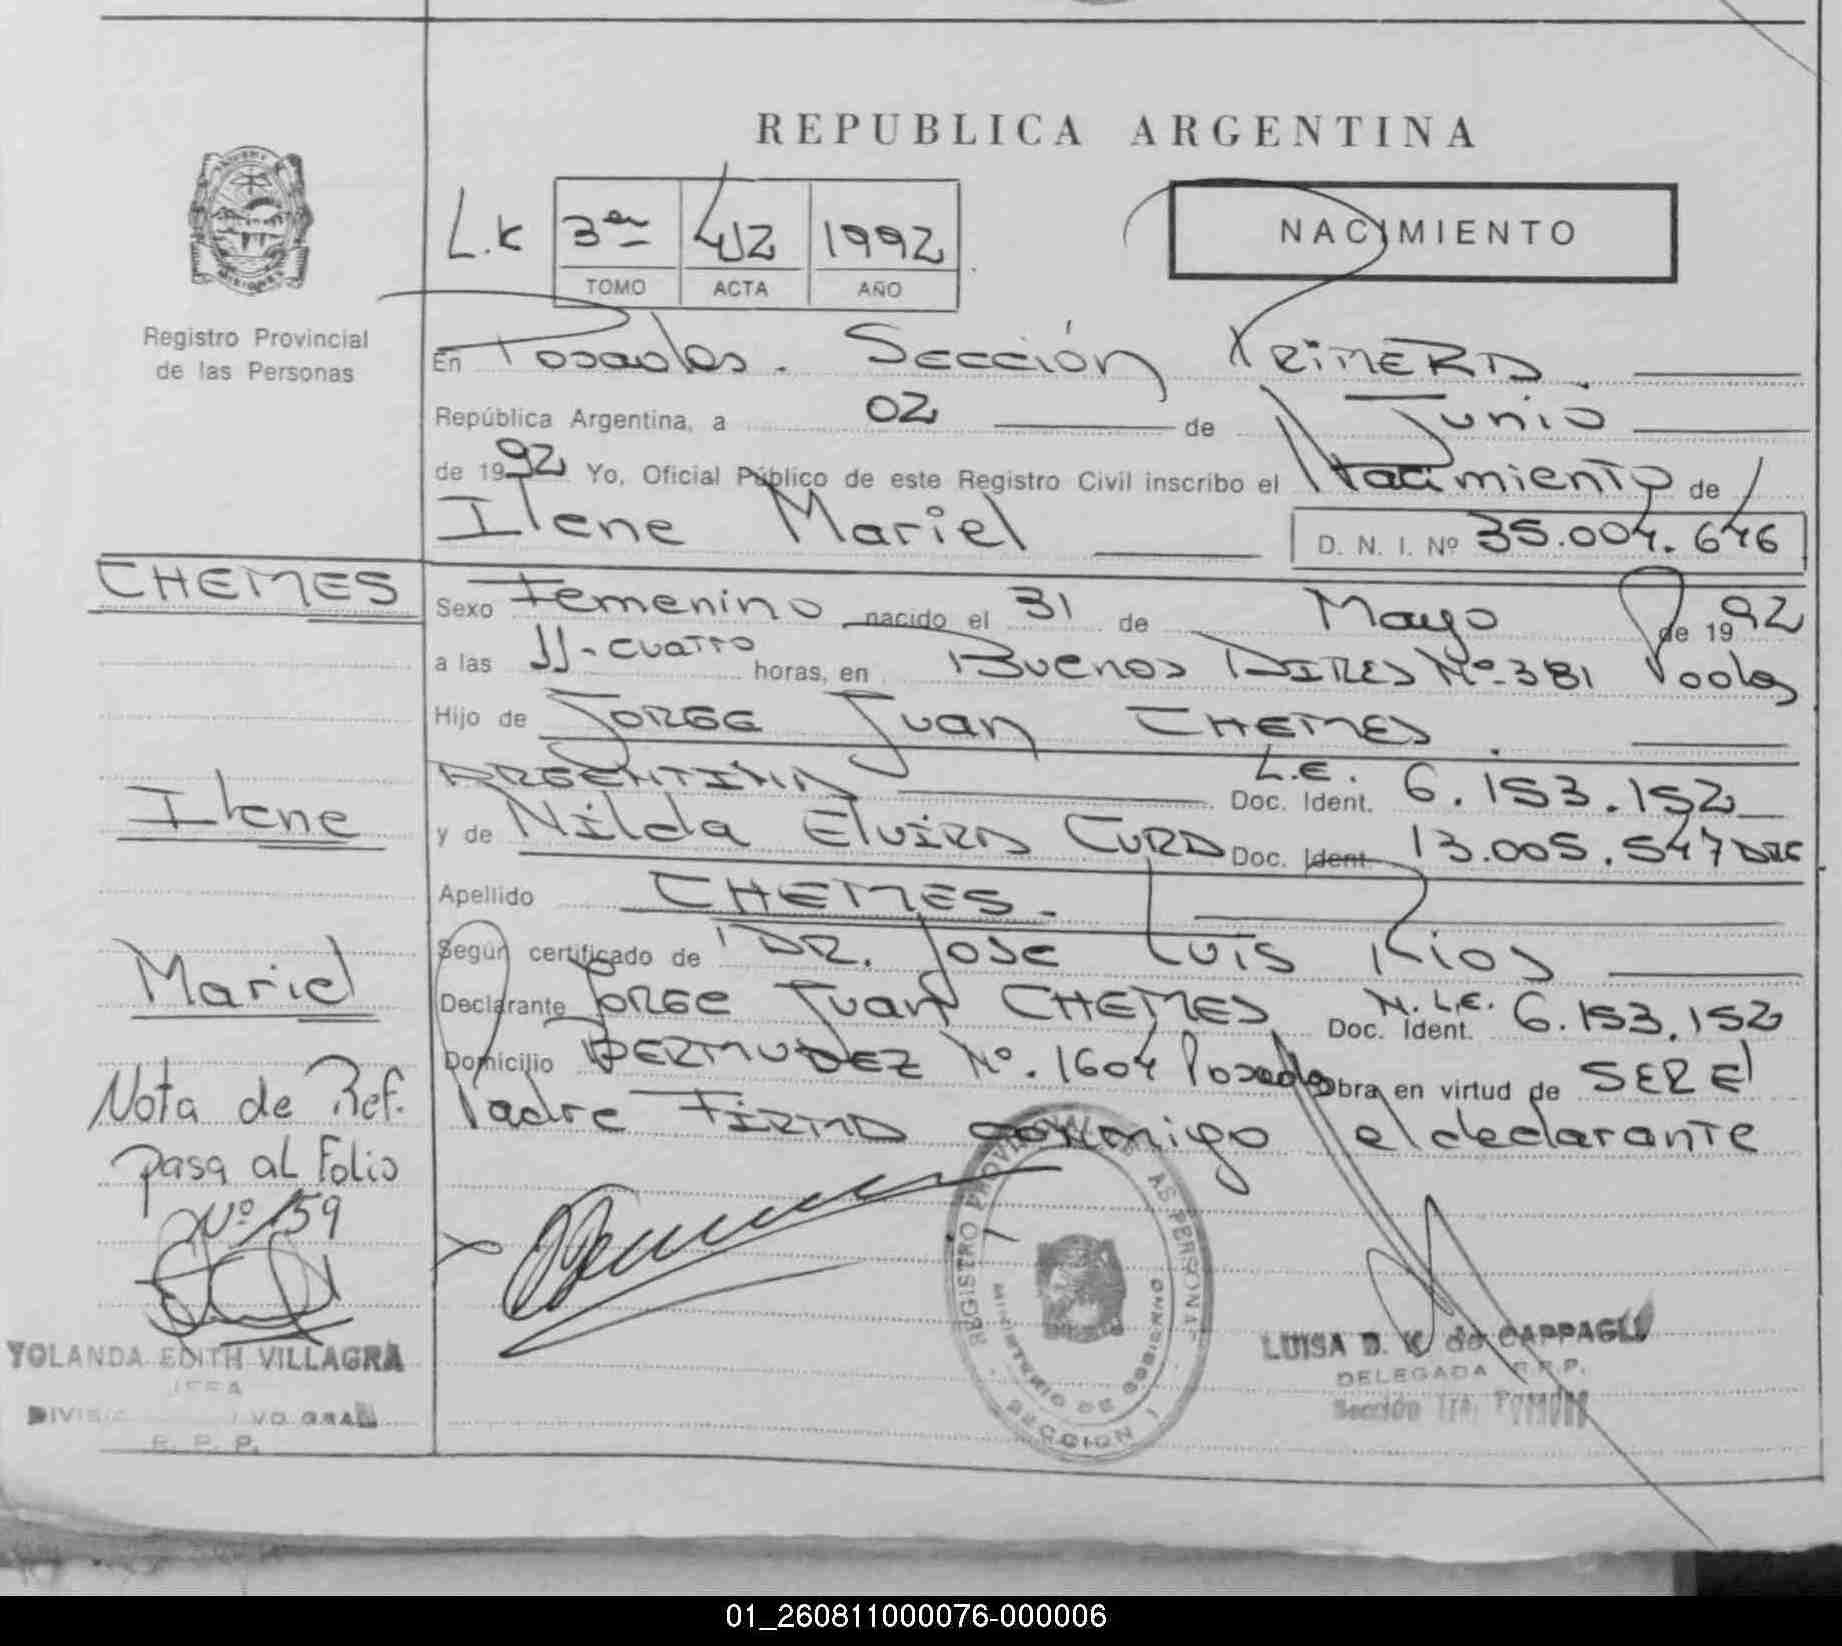 REPUBLICA ARGENTINA
L.K 3er 412 1992
TOMO ACTA AÑO
NACIMIENTO
Registro Provincial
de las Personas
En Posadas. Sección PRIMERA.
República Argentina, a 02 de Junio
de 1992 Yo, Oficial Público de este Registro Civil inscribo el Nacimiento de
Ilene Mariel D. N. I. Nº 35.004.646
CHEMES
Sexo Femenino nacido el 31 de Mayo de 1992
a las 11-cuatro horas, en Buenos AIRES Nº 381 Pdas
Hijo de JORGE Juan CHEMES.
ARGENTINA L.E. Doc. Ident. 6.153.152
Ilene
y de Nilda ElviRA CURA Doc. Ident. 13.005.547 ARG
Apellido CHEMES.
Mariel
Según certificado de DR. José Luis Rios
Declarante JORGE Juan CHEMES Doc. Ident. M.L.E. 6.153.152
Domicilio BERMUDEZ Nº. 1604 Posadas Obra en virtud de SER El
Padre FIRMA conmigo el declarante
Nota de Ref.
pasa al Folio
Nº 159
YOLANDA EDITH VILLAGRA
JEFA
R. P. P.
REGISTRO PROVINCIAL DE LAS PERSONAS
MINISTERIO DE GOBIERNO
SECCION 1
LUISA D. K de CAPPAGLI
DELEGADA R.P.P.
Sección 1ra.
01_260811000076-000006